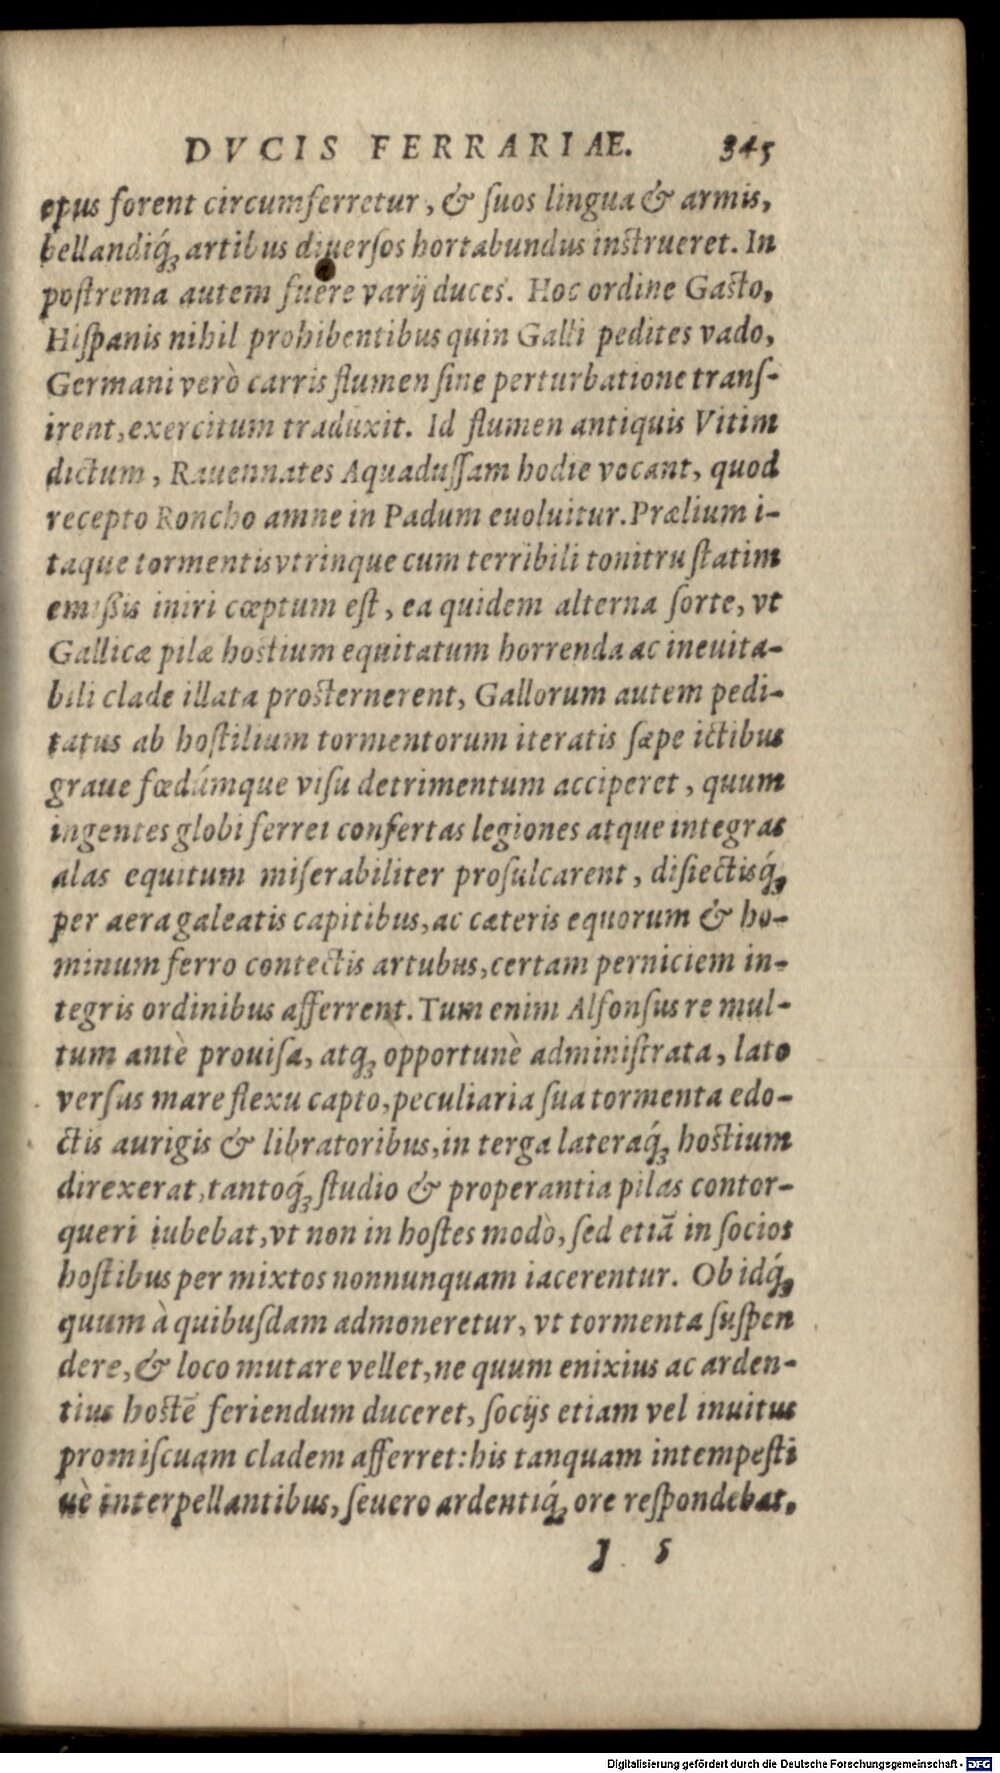 DVCIS FERRARIAE. 345
opus forent circumferretur, & ſuos lingua & armis,
bellandiq́; artibus diuerſos hortabundus inſtrueret. In
poſtrema autem fuêre varij duces. Hoc ordine Gaſto,
Hiſpanis nihil prohibentibus quin Galli pedites vado,
Germani verò carris flumen ſine perturbatione tranſ-
irent, exercitum traduxit. Id flumen antiquis Vitim
dictum, Rauennates Aquaduſſam hodie vocant, quod
recepto Roncho amne in Padum euoluitur. Prælium i-
taque tormentis vtrinque cum terribili tonitru ſtatim
emißis iniri cœptum eſt, ea quidem alterna ſorte, vt
Gallicæ pilæ hoſtium equitatum horrenda ac ineuita-
bili clade illata proſternerent, Gallorum autem pedi-
tatus ab hoſtilium tormentorum iteratis ſæpe ictibus
graue fœdúmque viſu detrimentum acciperet, quum
ingentes globi ferrei confertas legiones atque integras
alas equitum miſerabiliter proſulcarent, diſiectisq́;
per aera galeatis capitibus, ac cæteris equorum & ho-
minum ferro contectis artubus, certam perniciem in-
tegris ordinibus afferrent. Tum enim Alfonſus re mul-
tum antè prouiſa, atq; opportunè adminiſtrata, lato
verſus mare flexu capto, peculiaria ſua tormenta edo-
ctis aurigis & libratoribus, in terga lateraq́; hoſtium
direxerat, tantoq́; ſtudio & properantia pilas contor-
queri iubebat, vt non in hoſtes modò, ſed etiā in ſocios
hoſtibus per mixtos nonnunquam iacerentur. Ob idq́;
quum à quibuſdam admoneretur, vt tormenta ſuſpen
dere, & loco mutare vellet, ne quum enixius ac arden-
tius hoſtē feriendum duceret, ſocijs etiam vel inuitus
promiſcuam cladem afferret: his tanquam intempeſti
uè interpellantibus, ſeuero ardentiq́; ore reſpondebat.
J 5
Digitalisierung gefördert durch die Deutsche Forschungsgemeinschaft - DFG